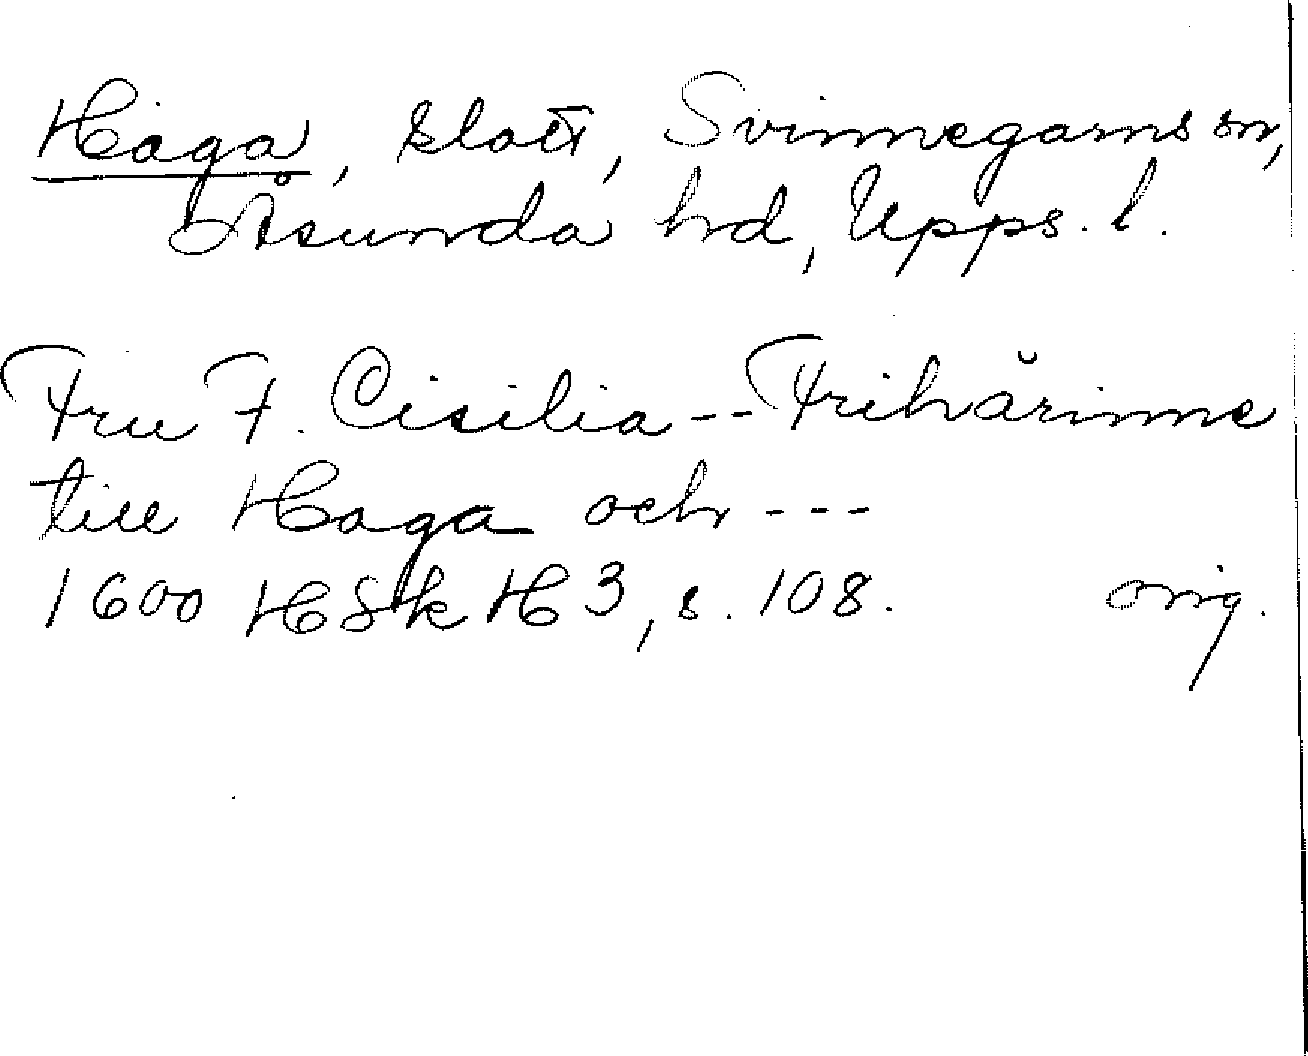 Haga, slott, Svinnegarns sn,
Åsunda hd, Upps. l.
Fru F. Cisilia -- Frihärinne
till Haga och ---
1600 HSk H3, s. 108. orig.